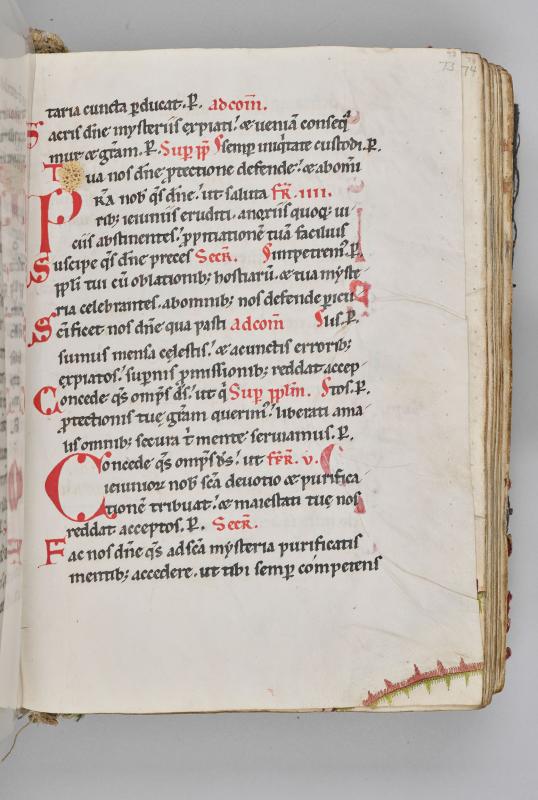 73 74
taria cuncta ꝑducat. P̱. ad com̄.
Sacris dn̄e mysteriis expiati / & ueniā conseq̄
mur & gr̄am. P̱. Sup̱ pp̄ls semp̱ iniq̇tate custodi. P̱.
Tua nos dn̄e ꝓtectione defende / & abom̄i
PRĀ nob̄ q̄s dn̄e / ut saluta FR̄. IIII.
rib; ieiuniis eruditi. a noxiis quoq; ui
ciis abstinentes / ꝓpitiationē tuā facilius
Suscipe q̄s dn̄e preces Secr̄. impetrem᷒. P̱.
pp̄li tui cū oblationib; hostiarū. & tua myste
ria celebrantes. ab omnib; nos defende ꝑicu
Sc̄ificet nos dn̄e qua pasti ad com̄ lis. P̱.
sumus mensa cęlestis / & a cunctis errorib;
expiatos / sup̱nis ꝓmissionib; reddat accep
Concede q̄s omp̄s d̄s / ut q̇ Sup̱ pp̄lm̄. tos. P̱.
ꝓtectionis tuę gr̄am querim᷒ / liberati a ma
lis omnib; secura t̄ mente seruiamus. P̱.
Concede q̄s omp̄s d̄s / ut FER̄. V.
ieiunior̄ nob̄ sc̄a deuotio & purifica
tionē tribuat / & maiestati tuę nos
reddat acceptos. P̱. Secr̄.
Fac nos dn̄e q̄s ad sc̄a mysteria purificatis
mentib; accedere. ut tibi semp̱ competens